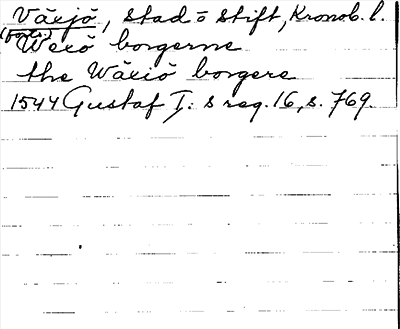 Växjö, stad o stift, Kronob. l.
(forts.) Wexö borgerne
the Wäxiö borgere
1544 Gustaf I: s reg. 16, s. 769.